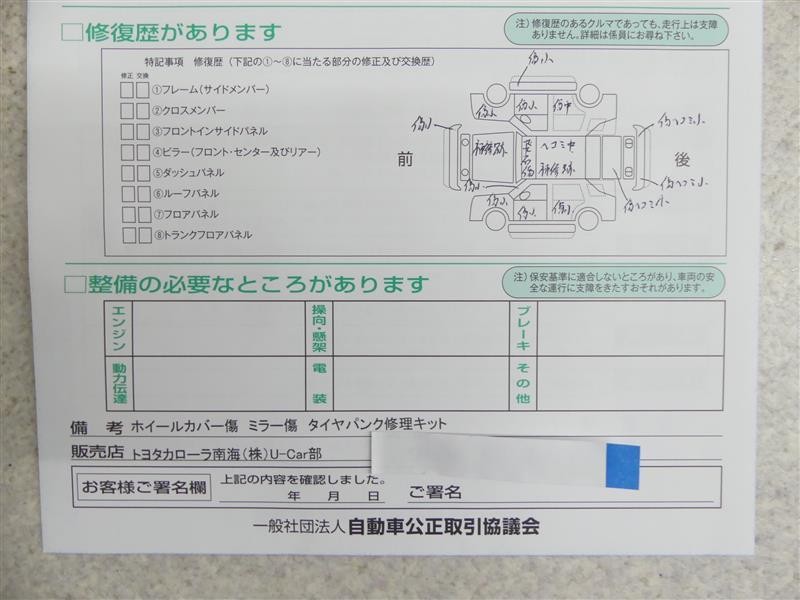 □修復歴があります
注）修復歴のあるクルマであっても、走行上は支障
ありません。詳細は係員にお尋ね下さい。
特記事項 修復歴（下記の①～⑧に当たる部分の修正及び交換歴）
修正 交換
①フレーム（サイドメンバー）
②クロスメンバー
③フロントインサイドパネル
④ピラー（フロント・センター及びリアー）
⑤ダッシュパネル
⑥ルーフパネル
⑦フロアパネル
⑧トランクフロアパネル
前
後
傷小
傷小
傷小
傷中
傷小
傷ヘコミ小
補修跡
ヘコミ中
補修跡
傷小
傷ヘコミ小
傷ヘコミ小
傷小
傷小
傷小
□整備の必要なところがあります
注）保安基準に適合しないところがあり、車両の安
全な運行に支障をきたすおそれがあります。
エンジン
操向・懸架
ブレーキ
動力伝達
電装
その他
備考 ホイールカバー傷 ミラー傷 タイヤパンク修理キット
販売店 トヨタカローラ南海（株）U-Car部
お客様ご署名欄
上記の内容を確認しました。
年 月 日 ご署名
一般社団法人 自動車公正取引協議会